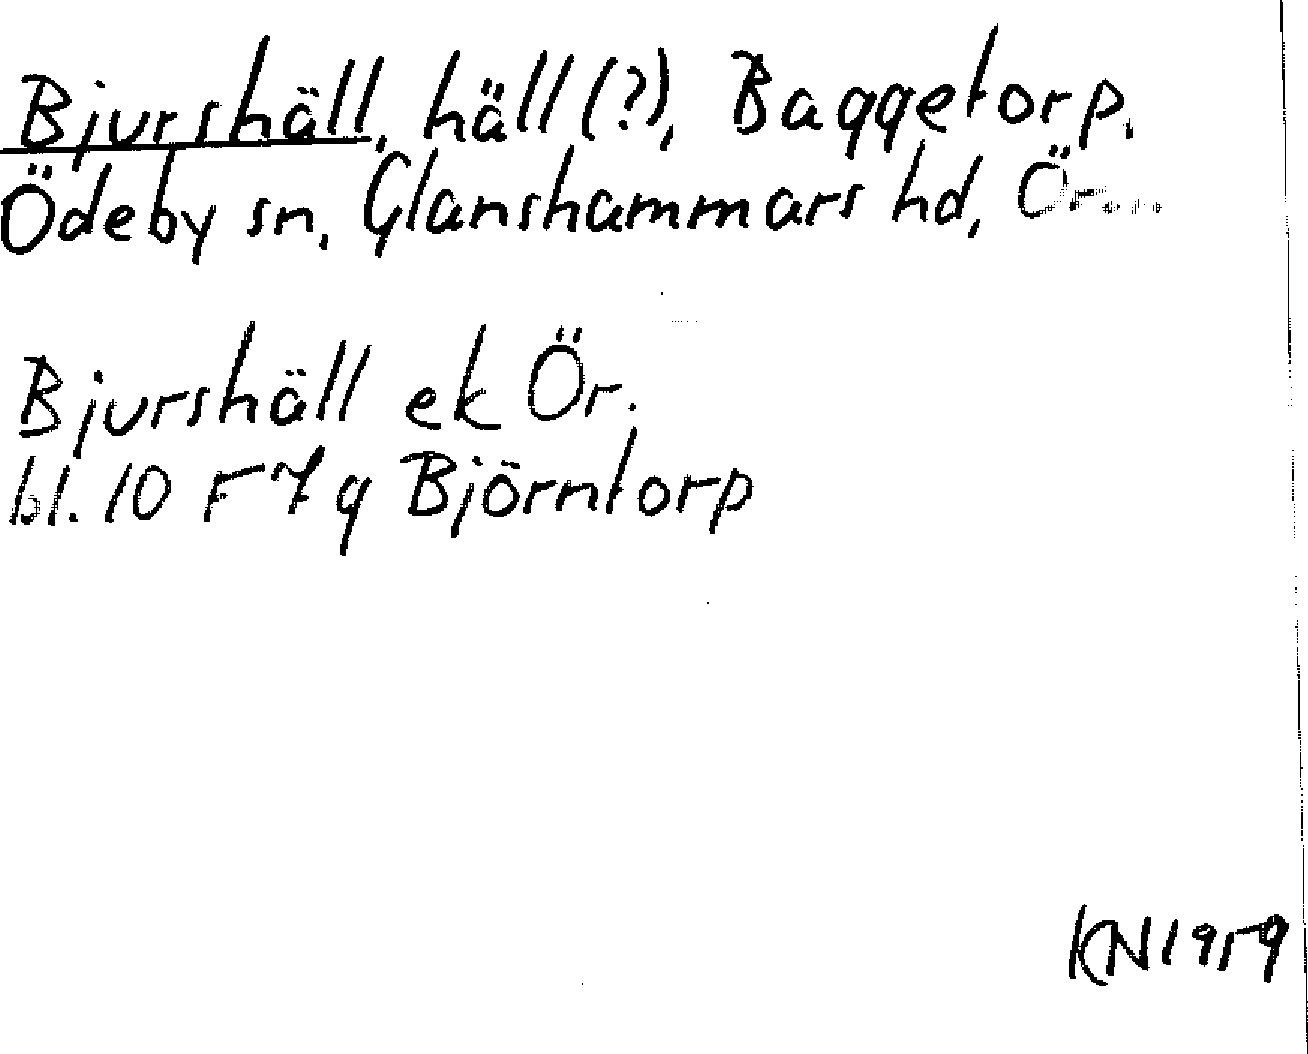 Bjurshäll, häll (?), Baggetorp,
Ödeby sn, Glanshammars hd, Ör...
Bjurshäll ek Ör.
bl. 10 F 7 g Björntorp
KN 1959